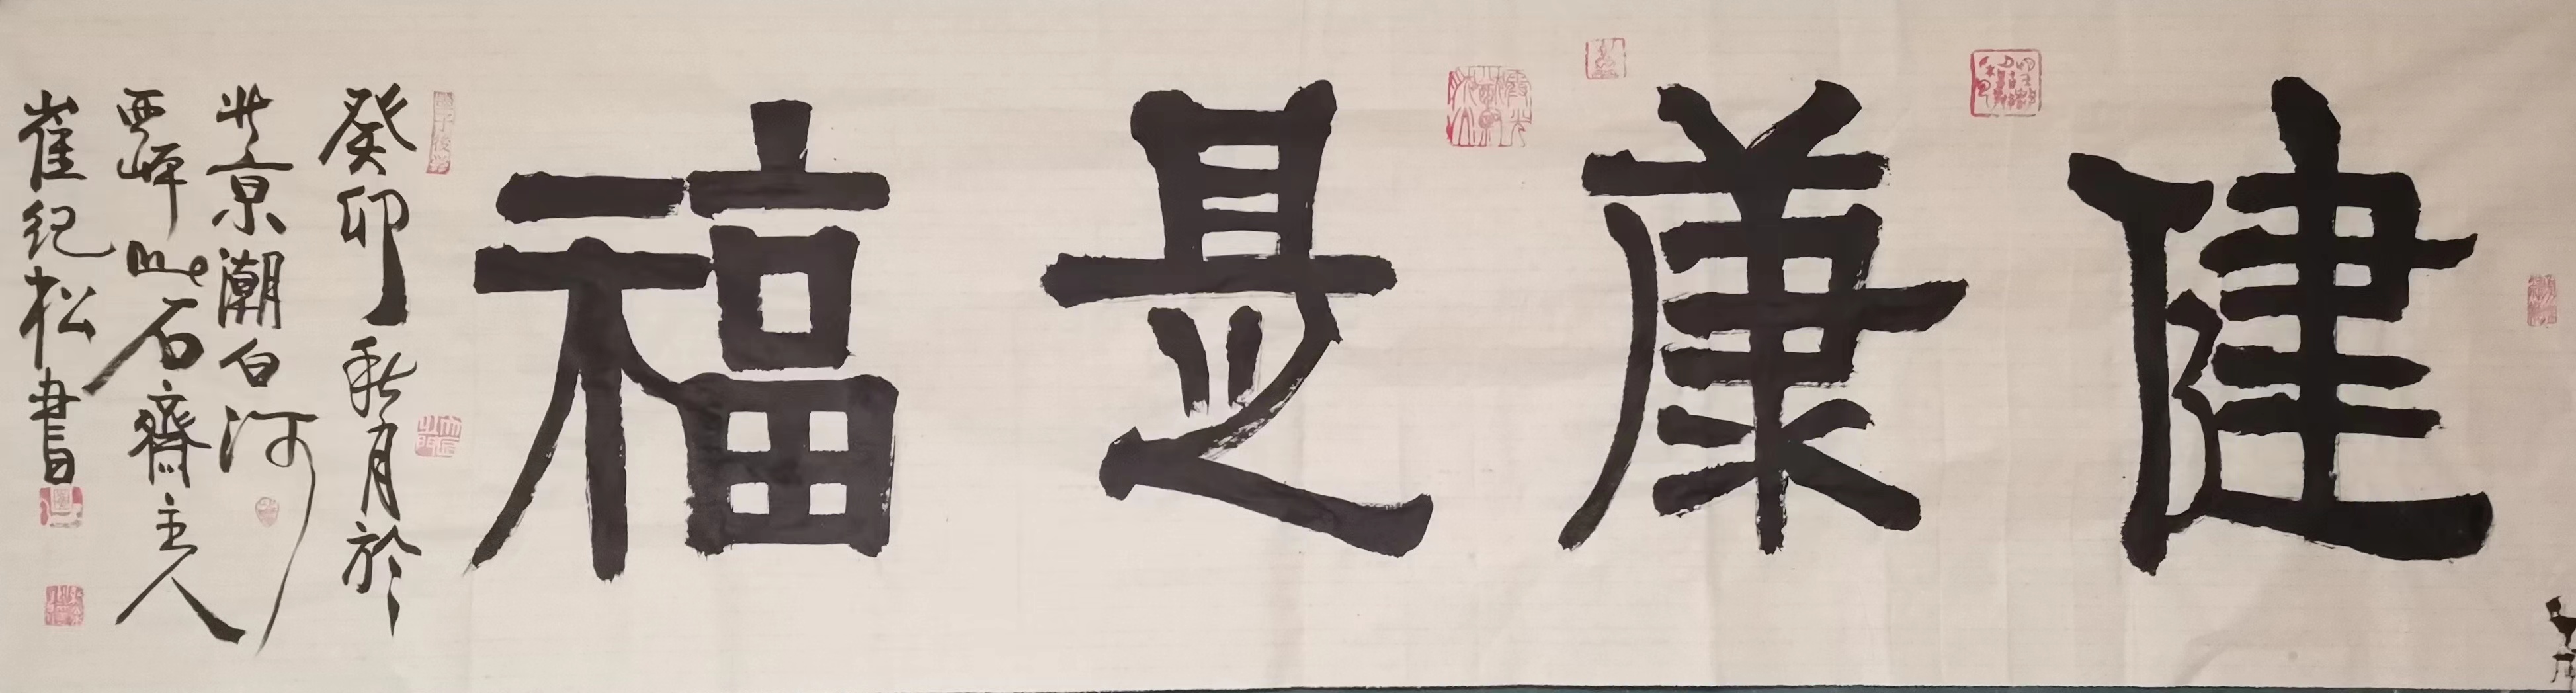 健康是福
癸卯秋月於
北京潮白河
西岸山石齋主人
崔纪松書